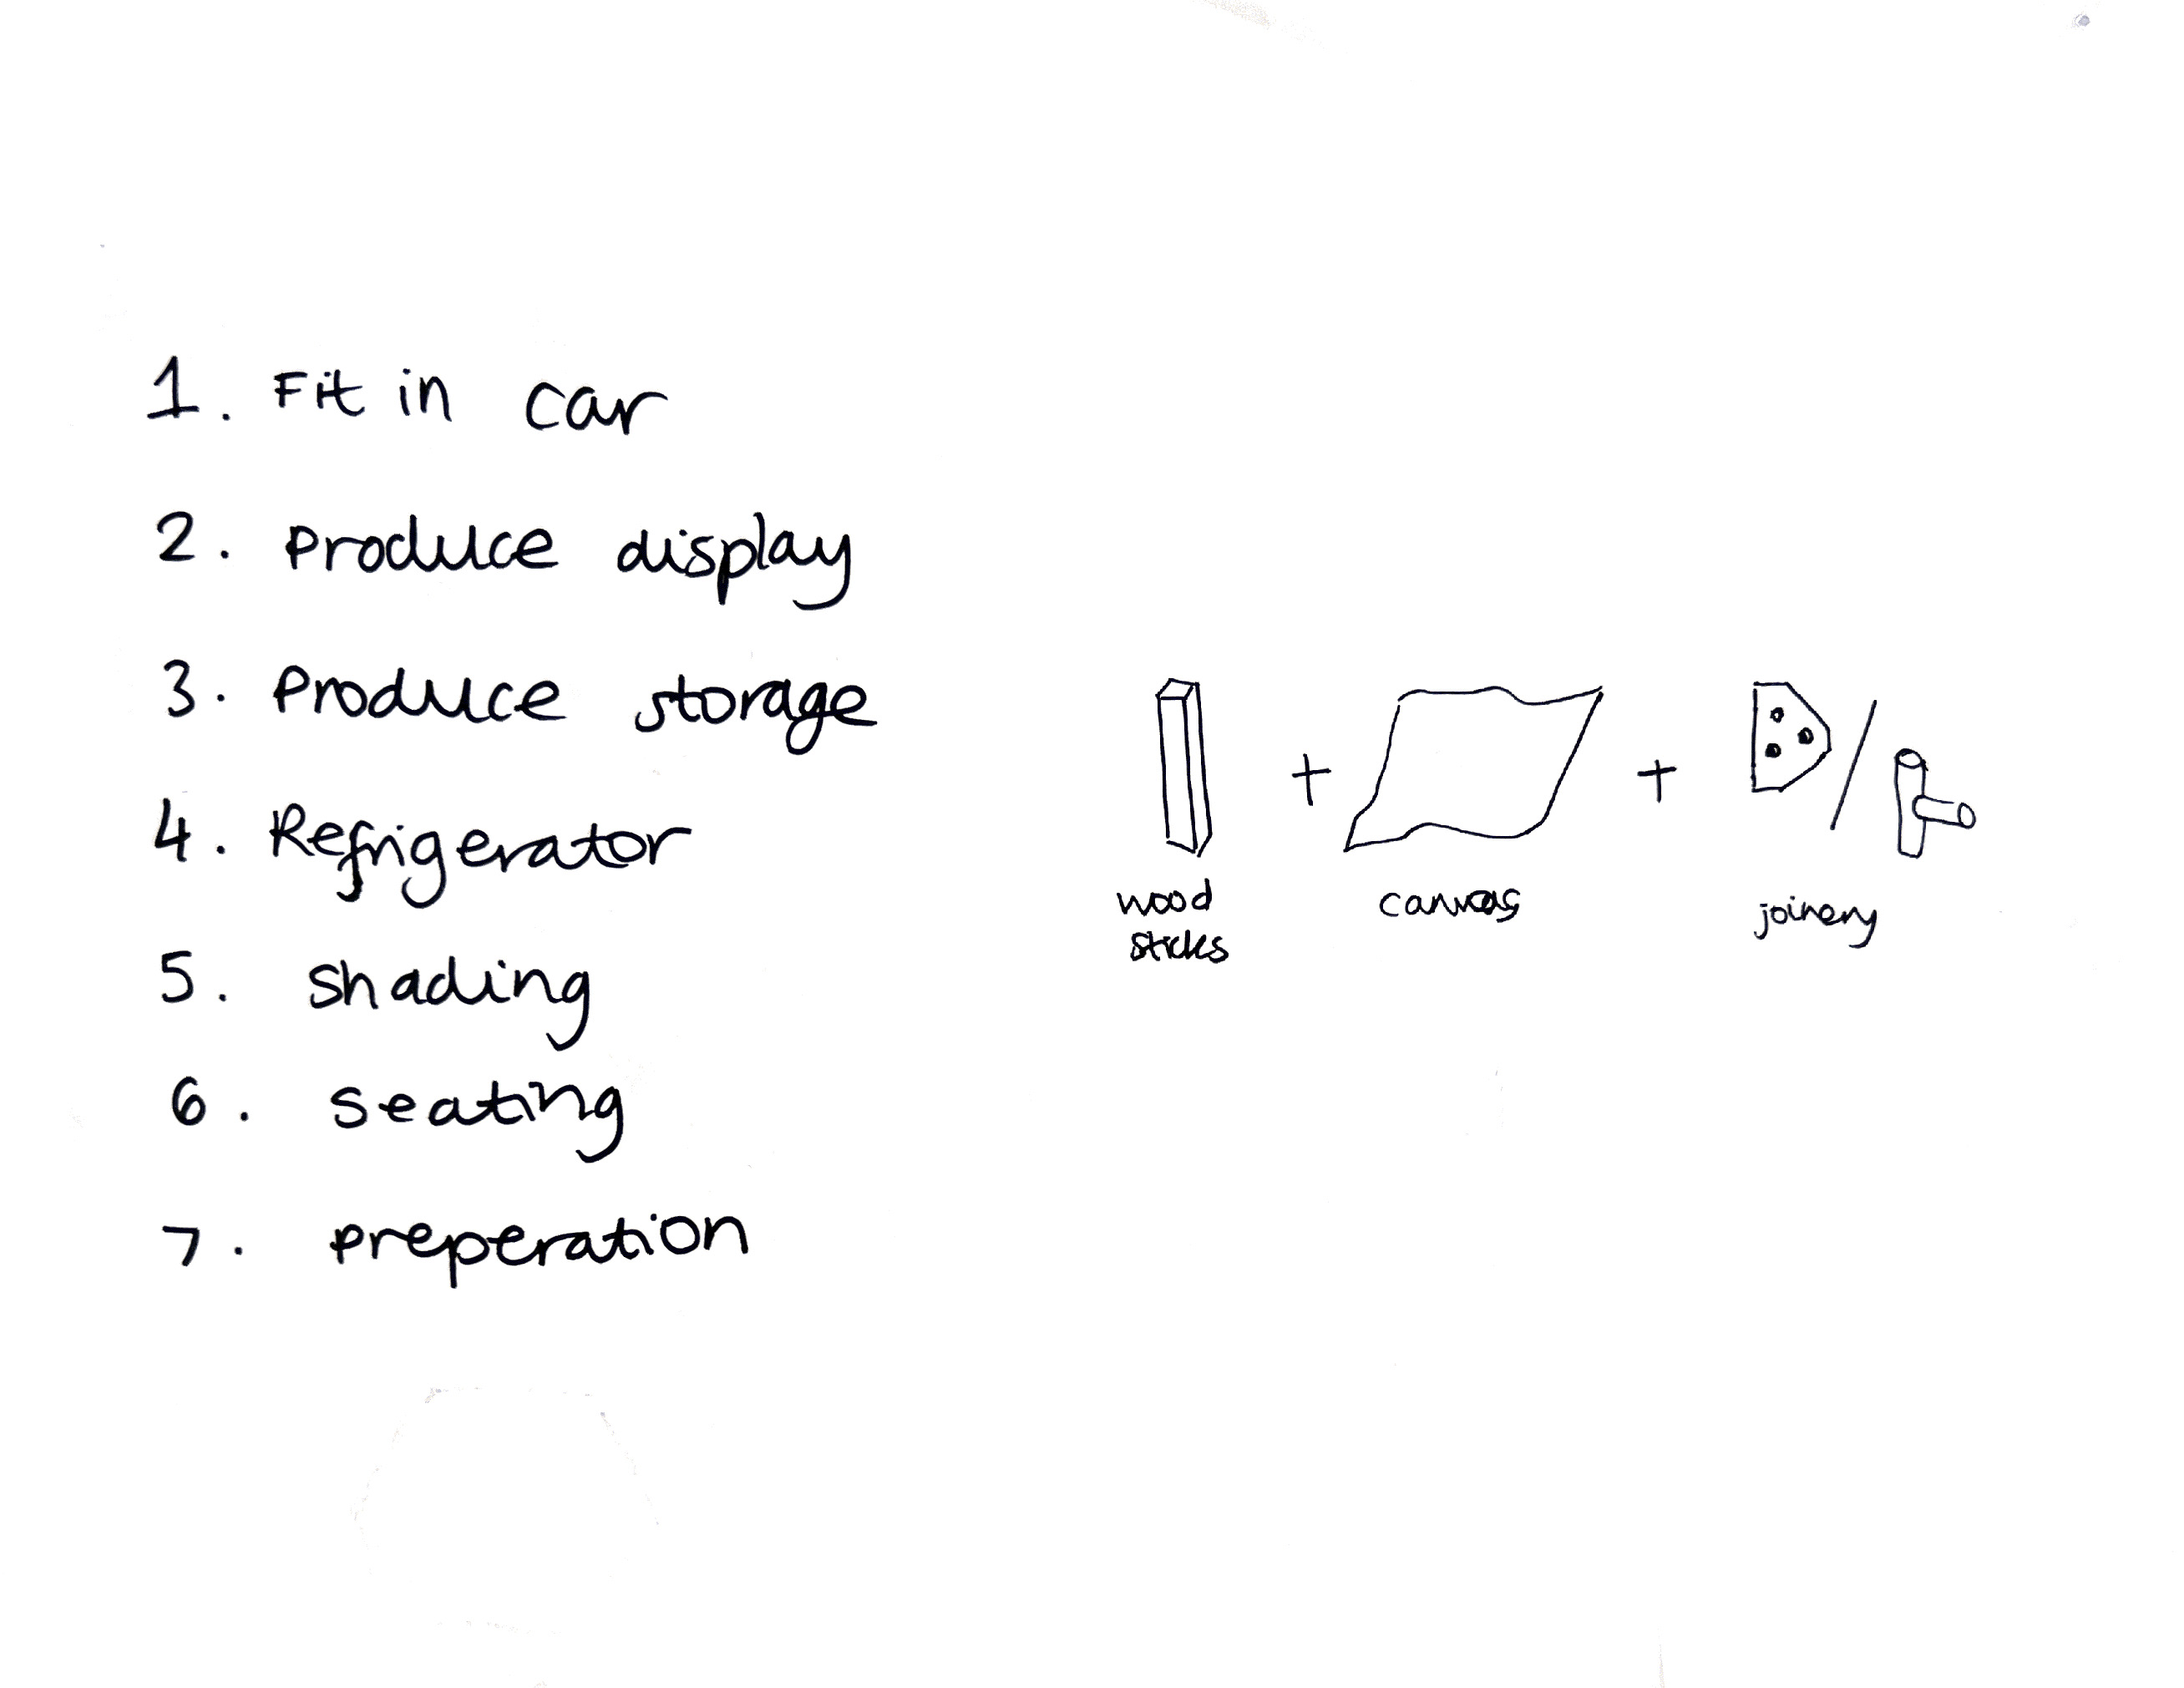 1. Fit in car
2. produce display
3. Produce storage
4. Refrigerator
5. shading
6. seating
7. preperation
+
+
/
wood
sticks
canvas
joinery